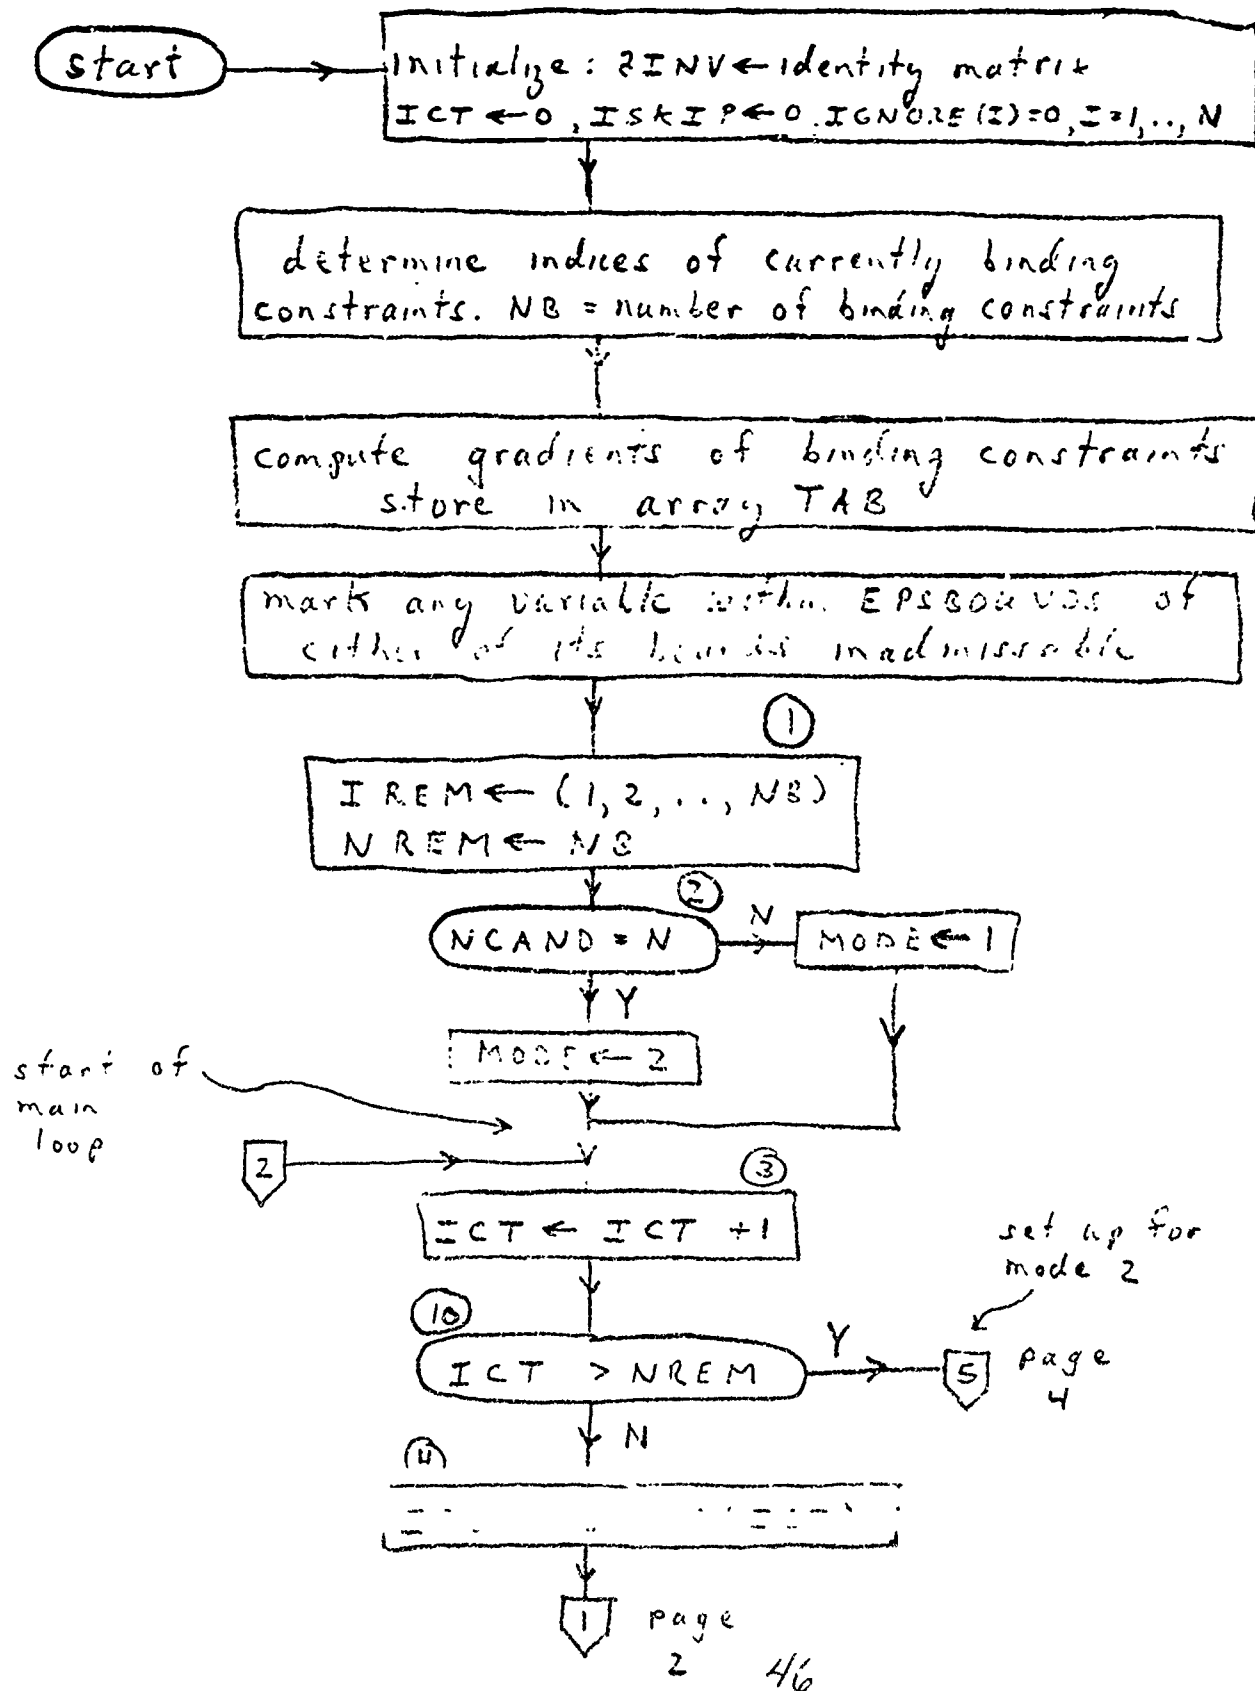 start
initialize: BINV ← identity matrix
ICT ← 0, ISKIP ← 0. IGNORE(I)=0, I=1,..,N
determine indices of currently binding
constraints. NB = number of binding constraints
compute gradients of binding constraints
store in array TAB
mark any variable within EPSBOUNDS of
either of its bounds inadmissable
1
IREM ← (1, 2, .., NB)
NREM ← NB
2
NCAND = N
N
MODE ← 1
Y
MODE ← 2
start of
main
loop
2
3
ICT ← ICT + 1
set up for
mode 2
10
ICT > NREM
Y
5
page
4
N
4
1
page
2
46